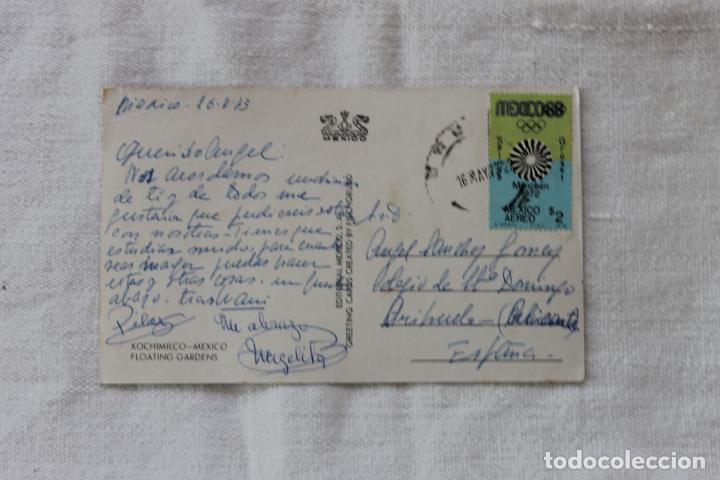 Mexico - 16-V-73
Querido Angel:
Nos acordamos muchísimo
de ti y de todos me
gustaría que pudieras estar
con nosotras. Tienes que
estudiar mucho, para cuando
seas mayor puedas hacer
estas y otras cosas. un fuerte
abrazo.
Pilar
Un abrazo
Angelita
XOCHIMILCO—MEXICO
FLOATING GARDENS
MEXICO
EDITORIAL MEXICO, S. A.
GREETING CARDS CREATED BY
16 MAY
MEXICO68
München
1972
MEXICO
AEREO $2
A. D.
Angel Sanchez Gomez
Colegio de Stº Domingo
Orihuela (Alicante)
España
todocoleccion.net